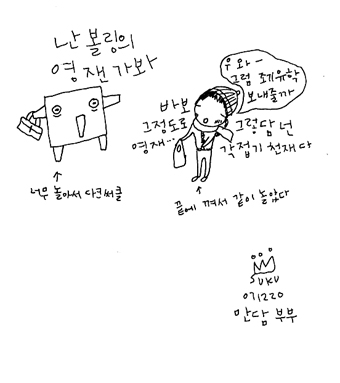 난 볼링의
영잰가봐
너무 놀아서 다크써클
우와-
그럼 조기유학
보내줄까
바보
그정도로
영재...
그렁담 넌
각접기 천재다
끝에 껴서 같이 놀았다
SUKU
071220
만담 부부